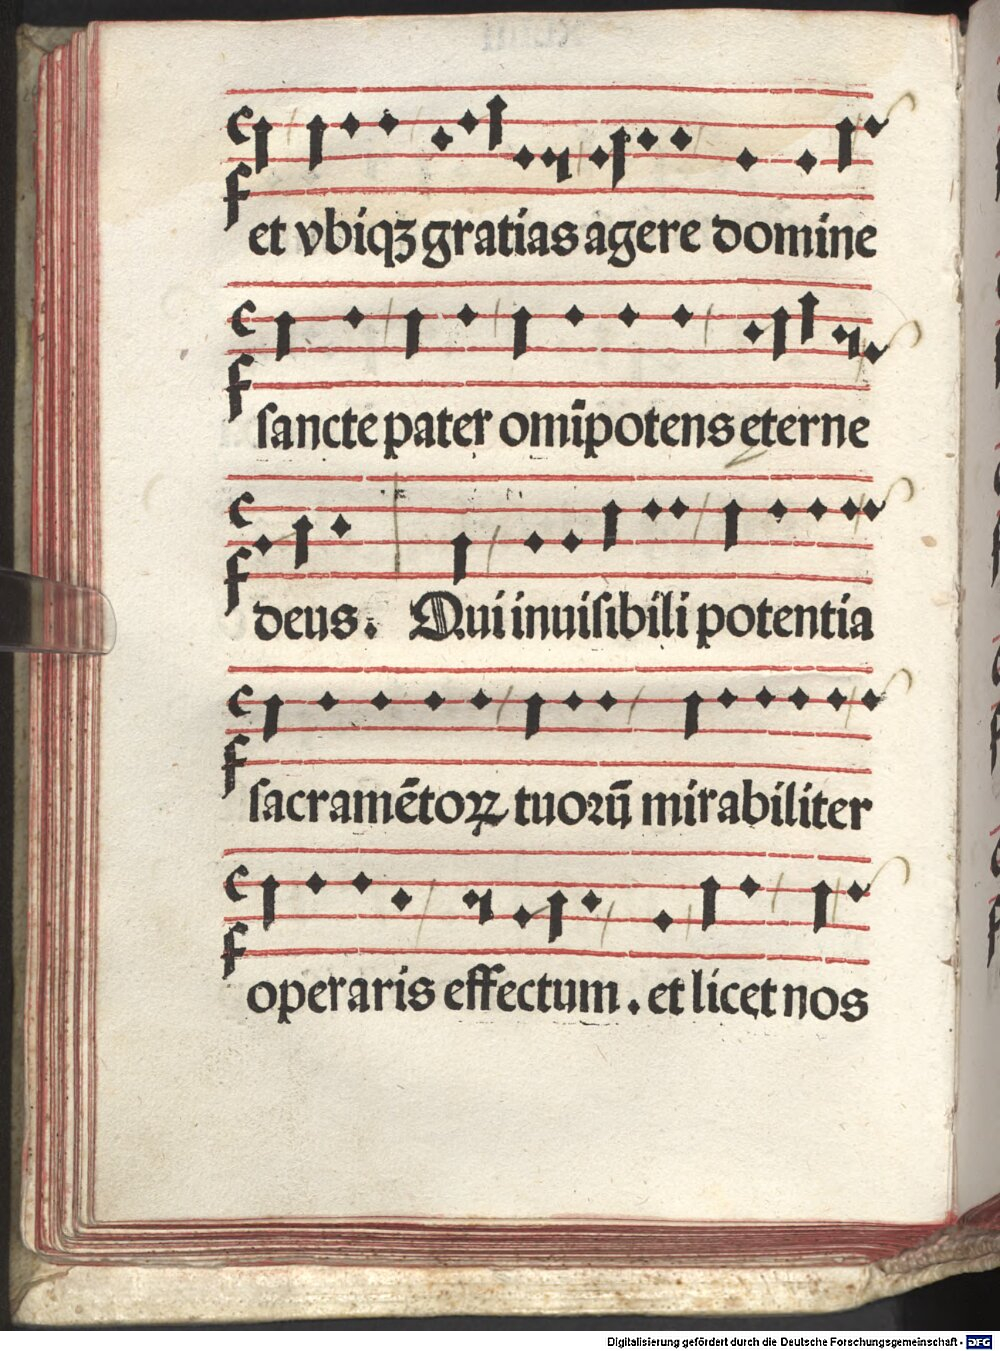 et vbiqꝫ gratias agere domine
sancte pater omīpotens eterne
deus. Qui inuisibili potentia
sacramētoꝝ tuorū mirabiliter
operaris effectum. et licet nos
Digitalisierung gefördert durch die Deutsche Forschungsgemeinschaft - DFG